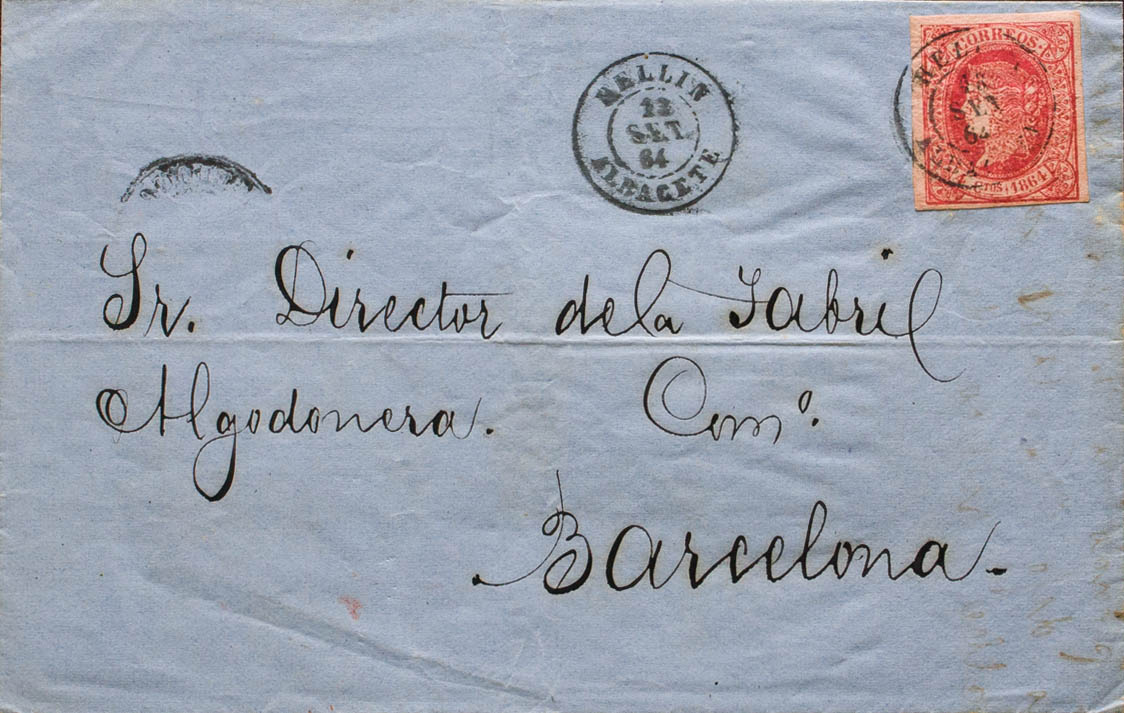 HELLIN
12
SET.
64
ALBACETE
CORREOS.
CTOS 1864
Sr. Director dela Fabril
Algodonera. Comº.
Barcelona.